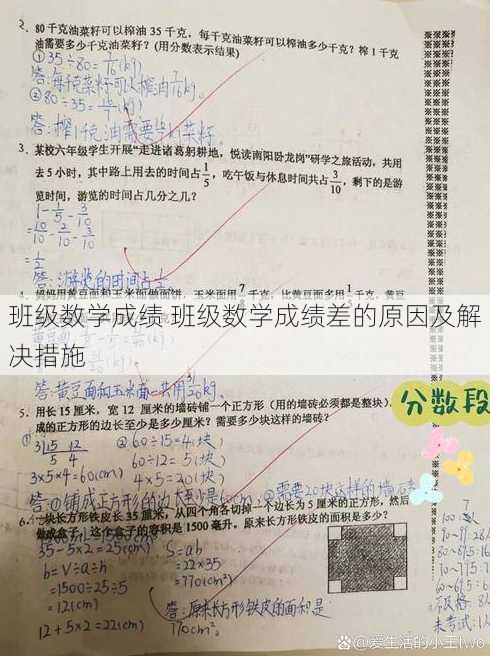 2. 80千克油菜籽可以榨油35千克，每千克油菜籽可以榨油多少千克？榨1千克
油需要多少千克油菜籽？（用分数表示结果）
①35÷80=7/16(kg)
答:每千克菜籽可以榨油7/16kg。
②80÷35=16/7(kg)
3. 某校六年级学生开展“走进诸葛躬耕地，悦读南阳卧龙岗”研学之旅活动，共用
去5小时，其中路上用去的时间占1/5，吃午饭与休息时间共占3/10，剩下的是游
览时间，游览的时间占几分之几？
1-1/5-3/10
=10/10-2/10-3/10
=1/2
答:游览的时间占1/2
班级数学成绩 班级数学成绩差的原因及解
决措施
答:黄豆面和玉米面一共用31/20kg。
分数段
5. 用长15厘米，宽12厘米的墙砖铺一个正方形（用的墙砖必须都是整块）
成的正方形的边长至少是多少厘米？需要多少块这样的墙砖？
3 15 12
5 4
3×5×4=60(cm)
②60÷15=4(块)
60÷12=5(块)
4×5=20(块)
答:①铺成正方形的边长至少是60cm,②需要20块这样的墙砖
6. 一块长方形铁皮长35厘米，从四个角各切掉一个边长为5厘米的正方形，然后
做成盒子，这个盒子的容积是1500毫升。原来长方形铁皮的面积是多少？
35-5×2=25(cm)
h=V÷a÷h
=1500÷25÷5
=12(cm)
12+5×2=22(cm)
S=ab
=22×35
=770(cm²)
答:原来长方形铁皮的面积是
770cm²。
未考试:1
@爱生活的小王two